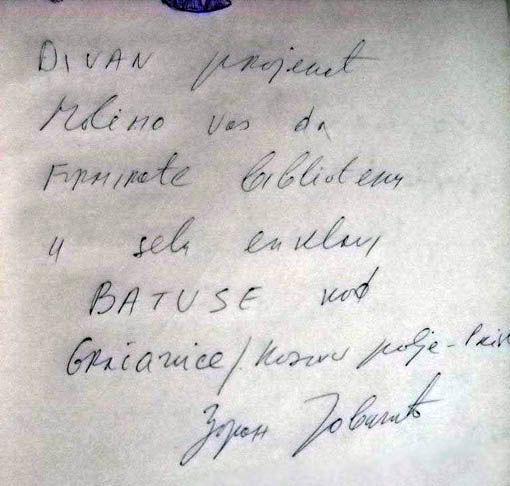 DIVAN projekat
Molimo vas da
Formirate biblioteku
u selu enklavi
BATUSE kod
Gračanice / Kosovu polje - Priš
Зоран